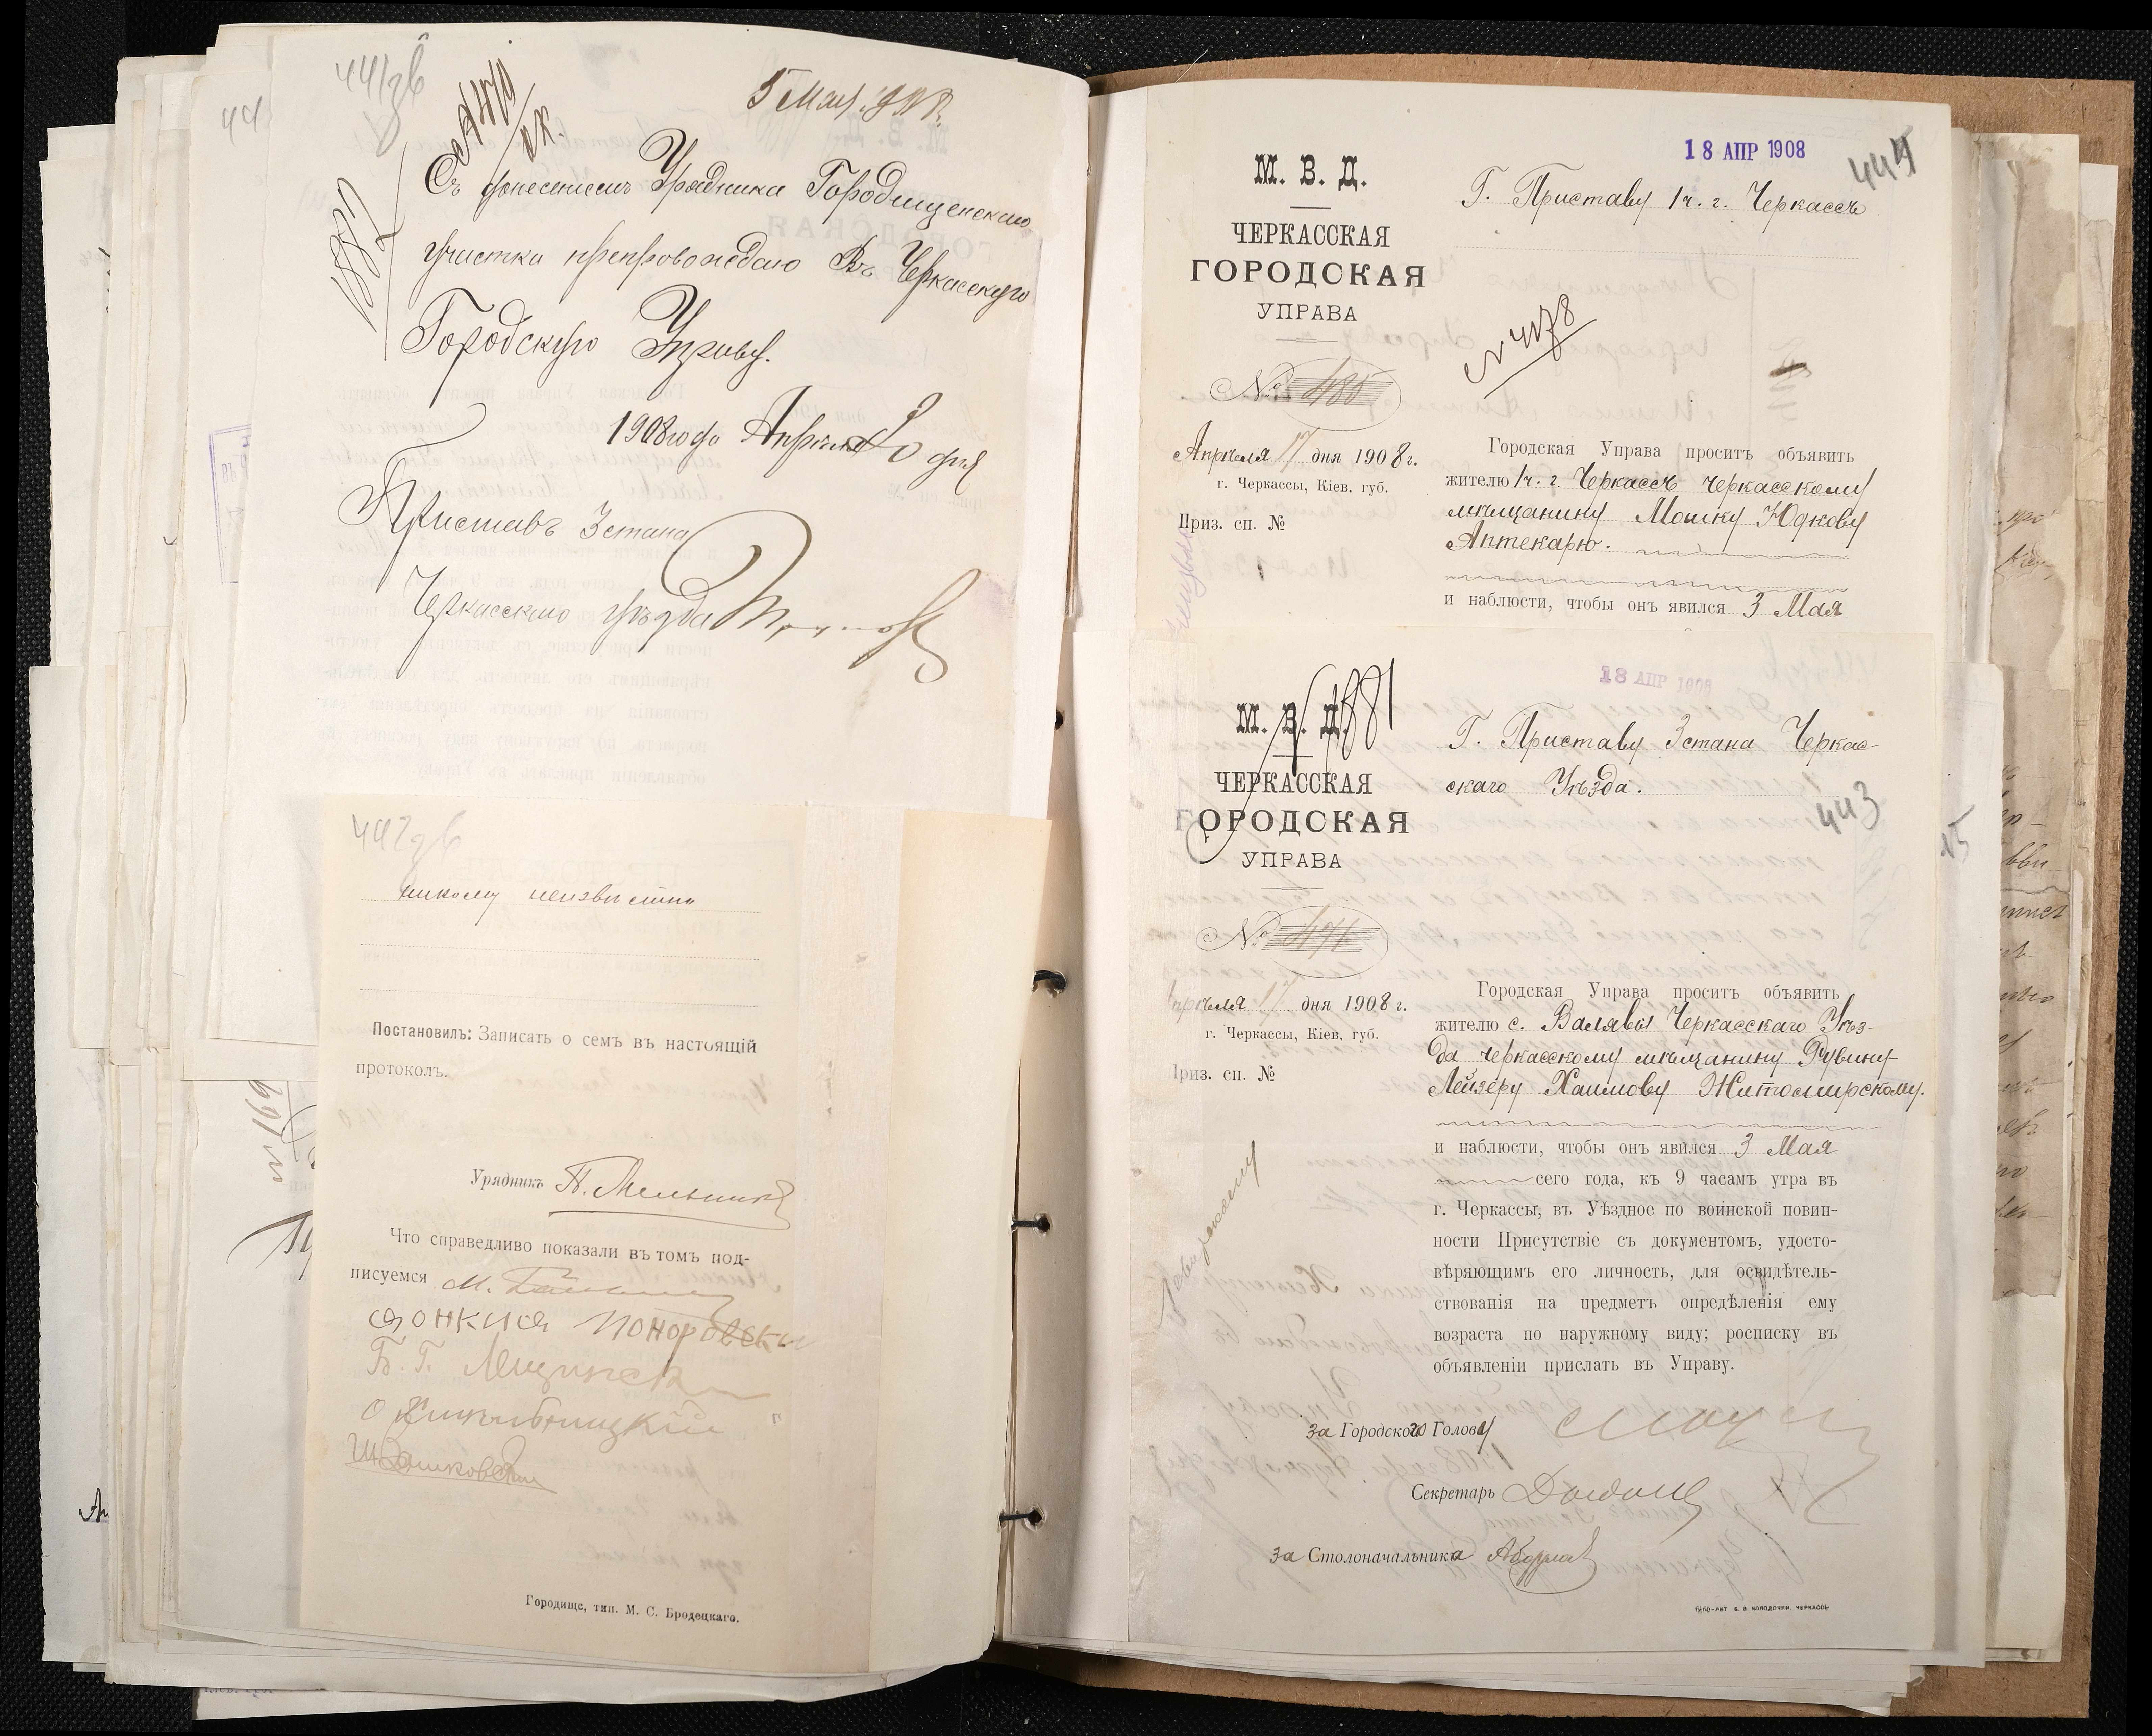 441 зв
5 Мая 1908.
Съ донесеніемъ Урядника Городищенскаго
участка препровождаю Въ Черкасскую
Городскую Управу.
1908 года Апрѣля 20 дня
Приставъ 3 стана
Черкасскаго уѣзда
442 зв
никому неизвѣстно
Постановилъ: Записать о семъ въ настоящій
протоколъ.
Урядникъ П. Мельникъ
Что справедливо показали въ томъ под-
писуемся
Городище, тип. М. С. Бродецкаго.
18 АПР 1908
444
М. В. Д.
ЧЕРКАССКАЯ
ГОРОДСКАЯ
УПРАВА
Г. Приставу 1 ч. г. Черкассъ
№ 4178
№ 485
Апрѣля 17 дня 1908 г.
г. Черкассы, Кіев. губ.
Приз. сп. №
Городская Управа проситъ объявить
жителю 1 ч. г. Черкассъ черкасскому
мѣщанину Мошку Юдкову
Аптекарю.
и наблюсти, чтобы онъ явился 3 Мая
18 АПР 1908
М. В. Д.
1881
ЧЕРКАССКАЯ
ГОРОДСКАЯ
УПРАВА
Г. Приставу 3 стана Черкас-
скаго Уѣзда.
443
№ 471
Апрѣля 17 дня 1908 г.
г. Черкассы, Кіев. губ.
Приз. сп. №
Городская Управа проситъ объявить
жителю с. Валявы Черкасскаго Уѣз-
да черкасскому мѣщанину Рувину-
Лейзеру Хаимову Житомирскому.
и наблюсти, чтобы онъ явился 3 Мая
сего года, къ 9 часамъ утра въ
г. Черкассы, въ Уѣздное по воинской повин-
ности Присутствіе съ документомъ, удосто-
вѣряющимъ его личность, для освидѣтель-
ствованія на предметъ опредѣленія ему
возраста по наружному виду; росписку въ
объявленіи прислать въ Управу.
За Городского Голову
Секретарь
За Столоначальника
15